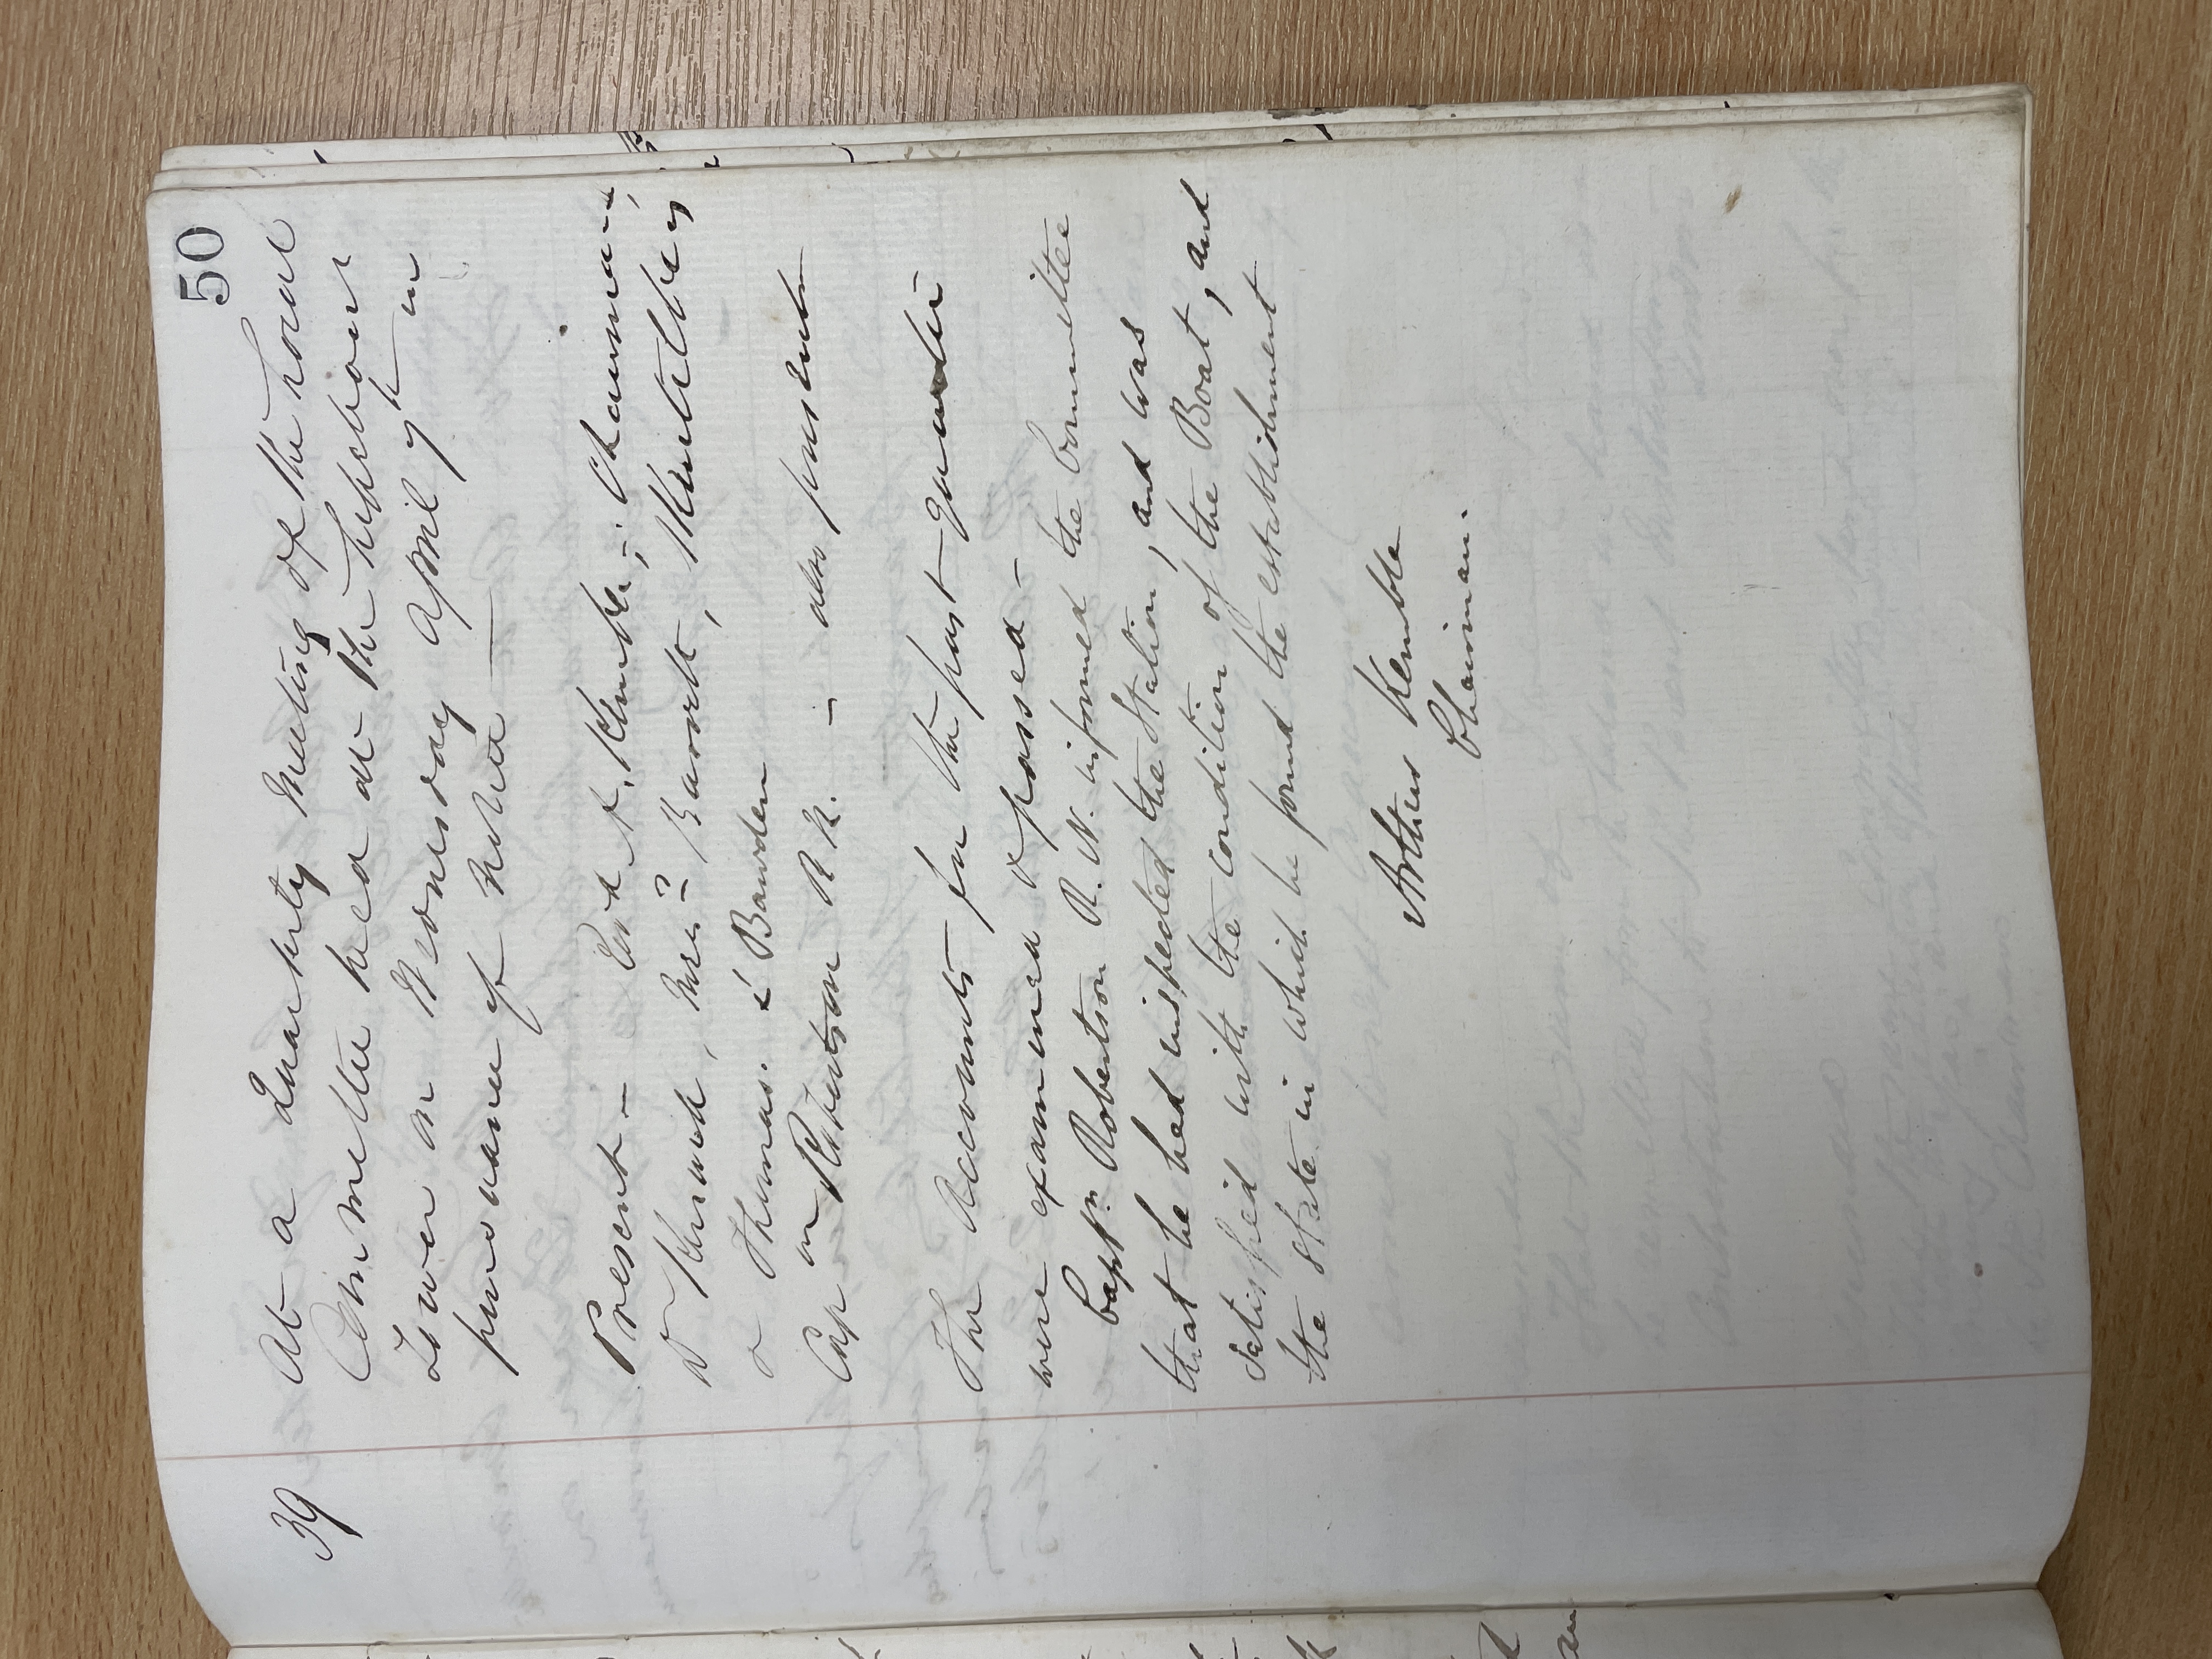 50
39
At a Quarterly Meeting of the Local
Committee held at the
Tower on Wednesday April 7th in
pursuance of notice
Present — Revd A. Kemble, Chairman,
Dr Kinnard, Mess:rs Barrett,
& Thomas. & Bawden
Cap n Robertson R.N. — also present
The Accounts for the past quarter
were examined & passed —
Captn. Robertson R.N. informed the Committee
that he had inspected the Station, and was
satisfied with the condition of the Boat, and
the state in which he found the establishment
Arthur Kemble
Chairman.